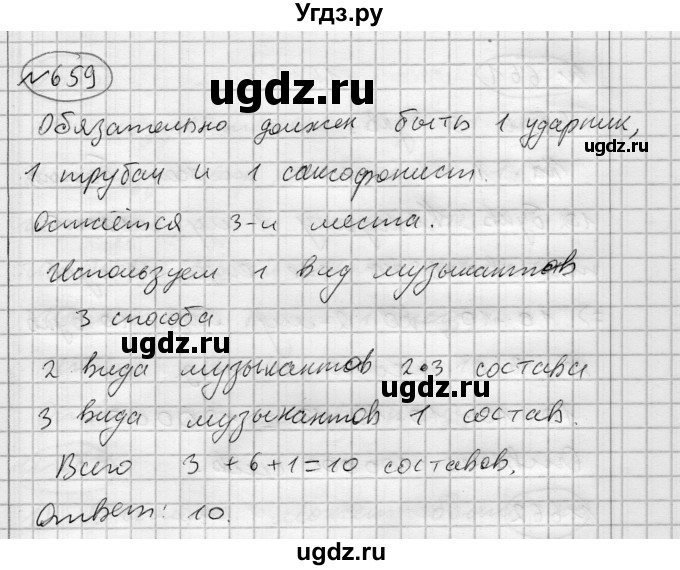 Угдз.ру
№659
ugdz.ru
Обязательно должен быть 1 ударник,
1 трубач и 1 саксофонист.
Остаётся 3-и места.
Используем 1 вид музыкантов
3 способа
ugdz.ru
2 вида музыкантов 2•3 состава
ugdz.ru
3 вида музыкантов 1 состав.
Всего 3+6+1=10 составов.
Ответ: 10.
ugdz.ru